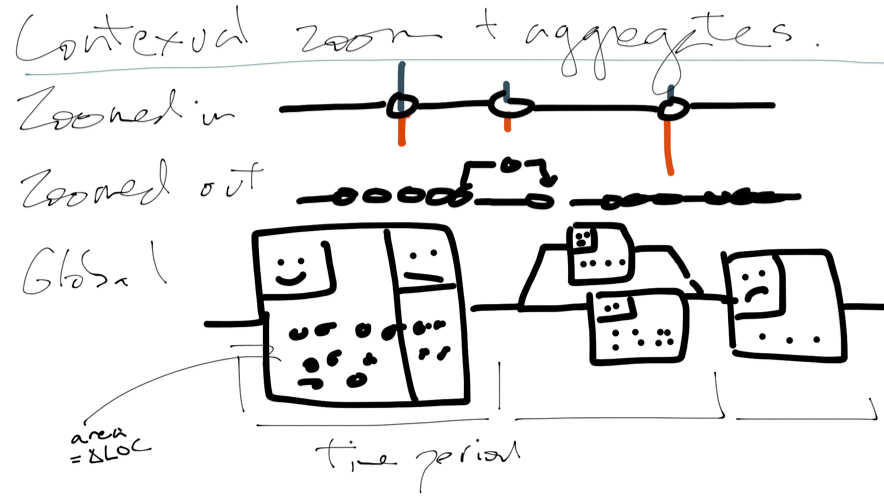 Contexual zoom + aggregates.
Zoomed in
Zoomed out
Global
area
= ΔLOC
time period